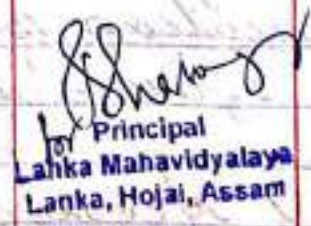 for
Principal
Lanka Mahavidyalaya
Lanka, Hojai, Assam